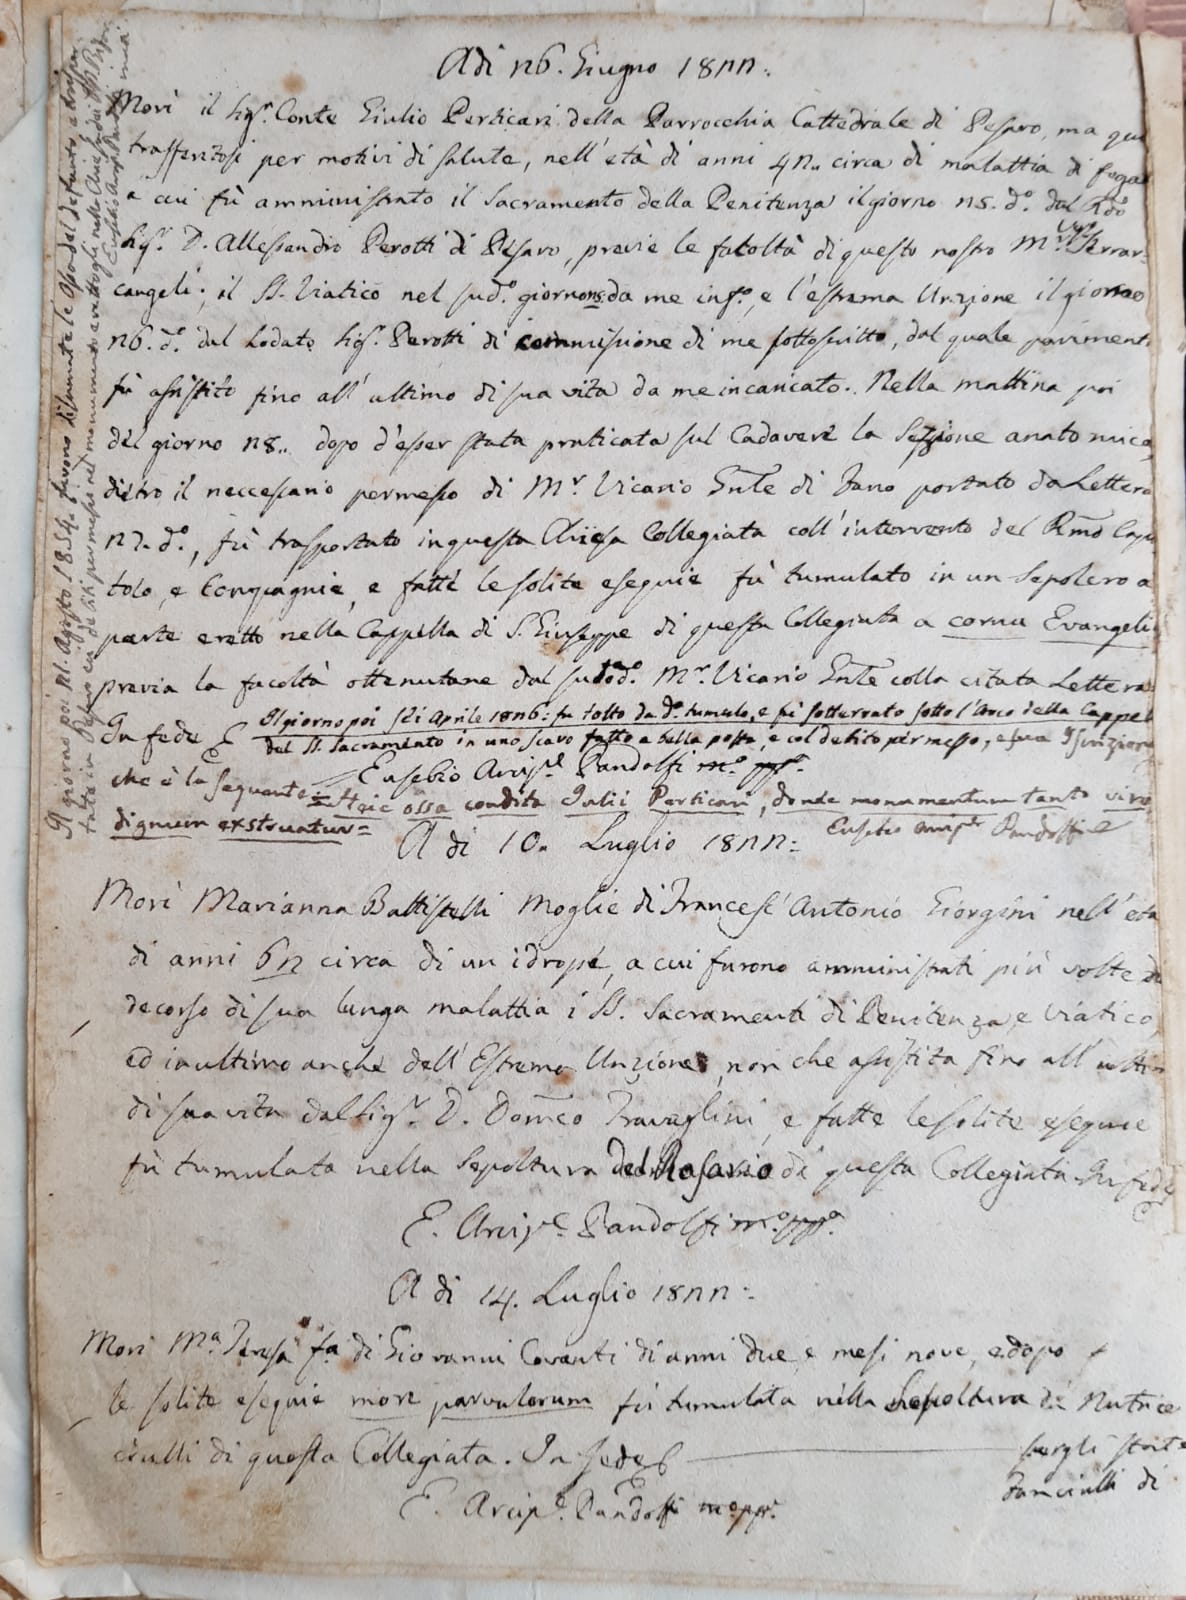 Adi 26. Giugno 1822:
Morì il Sigr. Conte Giulio Perticari della Parrocchia Cattedrale di Pesaro, ma qui
trasferitosi per motivi di salute, nell'età di anni 42.. circa di malattia di fega
a cui fù amministrato il Sacramento della Penitenza il giorno 25. do. dal Rdo
Sigr. D. Allessandro Perotti di Pesaro, previe le facoltà di questo nostro Mr. Vico Serrar=
cangeli; il SS. Viatico nel sudo. giorno 25 da me info., e l'estrema Unzione il giorno
26. do. dal Lodato Sigr. Perotti di commissione di me sottoscritto, dal quale pariment
fù assistito fino all'ultimo di sua vita da me incaricato. Nella mattina poi
del giorno 28.. dopo d'esser stata praticata sul Cadavere la Sezzione anatomica,
dietro il neccesario permesso di Mr. Vicario Gnle di Fano portato da Lettera
27. do., fù trasportato in questa Chiesa Collegiata coll'intervento del Rmo Capi
tolo, e Compagnie, e fatte le solite esequie fù tumulato in un Sepolcro a
parte eretto nella Cappella di S. Giuseppe di questa Collegiata a cornu Evangelii
previa la facoltà ottenutane dal sudo. Mr. Vicario Gnle colla citata Lettera
In fede E
Il giorno poi 5 di Aprile 1826: fu tolto da do. tumulo, e fù sotterrato sotto l'Arco della Cappel
del SS. Sacramento in uno scavo fatto a bella posta, e col debito permesso, e sua Iscrizione
Eusebio Arcipe. Pandolfi mo. ppo.
che è la seguente = Heic ossa condita Julii Perticari, donec monumentum tanto viro
dignum exstruatur =
Eusebio Arcipe Pandolfi
Il giorno poi 21. Agosto 1854 furono disumate le Ossa del defunto e traspor
tate in Pesaro coi debiti permessi nel monumento erettogli nella Chiesa dei
A di 10. Luglio 1822:
Morì Marianna Battistelli Moglie di Francesc'Antonio Giorgini nell'età
di anni 62 circa di un idrope, a cui furono amministrati più volte
decorso di sua lunga malattia i SS. Sacramenti di Penitenza, e Viatico,
ed in ultimo anche dell'Estrema Unzione, non che assistita fino all'ultim
di sua vita dal Sigr. D. Domco Travaglini, e fatte le solite esequie
fù tumulata nella Sepoltura del Rosario di questa Collegiata In fede
E. Arcipe Pandolfi mo. ppa.
A di 14. Luglio 1822:
Morì Ma. Teresa fa di Giovanni Covanti di anni due, e mesi nove, e dopo
le solite esequie more parvulorum fù tumulata nella Sepoltura di Nutrice
ciulli di questa Collegiata. In fede
per gli
Fanciulli di
E. Arcipe. Pandolfi mo ppo.